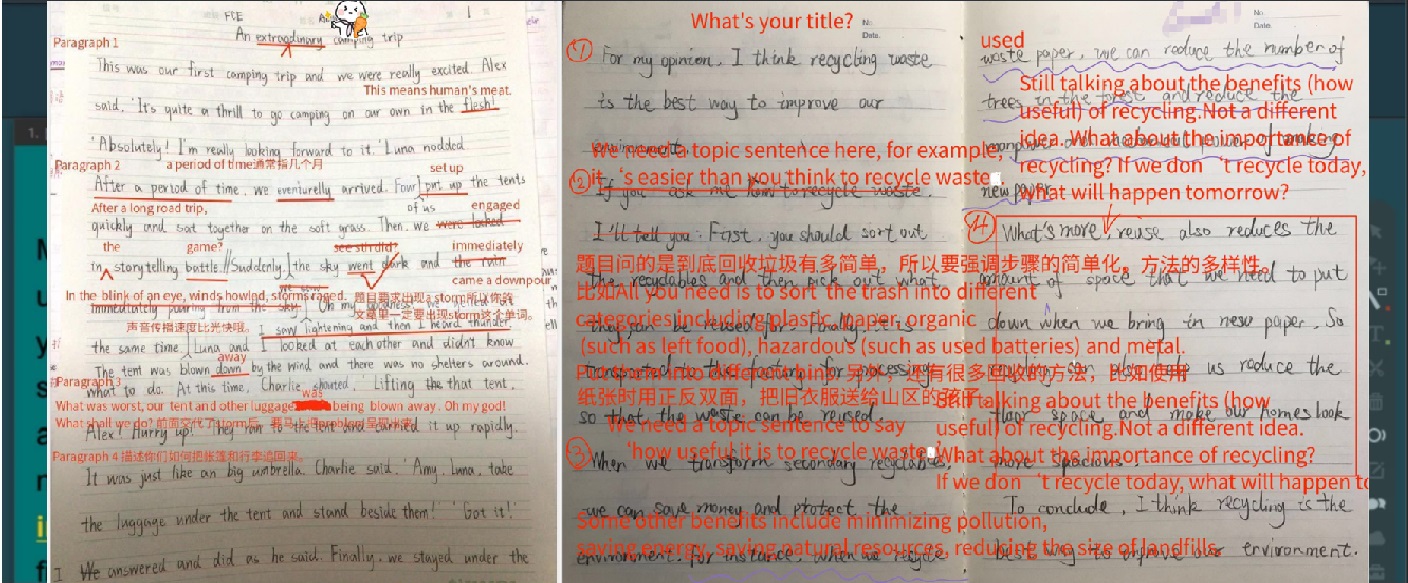 FCE
An extraordinary camping trip
Paragraph 1
This was our first camping trip and we were really excited. Alex
This means human's meat.
said, 'It's quite a thrill to go camping on our own in the flesh!'
'Absolutely! I'm really looking forward to it.' Luna nodded
Paragraph 2
a period of time通常指几个月
set up
After a period of time, we eventurelly arrived. Four put up the tents
After a long road trip,
of us
engaged
quickly and sat together on the soft grass. Then, we were locked
the
game?
see sth did?
immediately
in storytelling battle. Suddenly, the sky went dark and the rain
came a downpour
In the blink of an eye, winds howlnd, storms raged.
题目要求出现a storm所以你的
immediately pouring from the sky. Oh my
文章里一定要出现storm这个单词。
声音传播速度比光快哦。
I saw lightening and then I heard thunder
the same time. Luna and I looked at each other and didn't know
away
The tent was blown down by the wind and there was no shelters around.
Paragraph 3
what to do. At this time, Charlie shouted, 'Lifting the that tent,
was
What was worst, our tent and other luggage being blown away. Oh my god!
What shall we do?
Alex! Hurry up!' They ran to the tent and carried it up rapidly.
Paragraph 4 描述你们如何把帐篷和行李追回来。
It was just like an big umbrella. Charlie said, 'Amy, Luna, take
the luggage under the tent and stand beside them!' 'Got it!'
We answered and did as he said. Finally, we stayed under the
What's your title?
No.
Date.
(1) For my opinion, I think recycling waste
is the best way to improve our
environment.
We need a topic sentence here, for example,
it‘s easier than you think to recycle waste
(2) If you ask me how to recycle waste.
I'll tell you. First, you should sort out
题目问的是到底回收垃圾有多简单，所以要强调步骤的简单化，方法的多样性。
the recyclables and then pick out what
比如All you need is to sort the trash into different
they can be reused for. Finally, it is
categories,including plastic, paper, organic
(such as left food), hazardous (such as used batteries) and metal.
transported to the factory for processing
Put them into different bins. 另外，还有很多回收的方法，比如使用
纸张时用正反双面，把旧衣服送给山区的孩子
so that the waste can be reused.
We need a topic sentence to say
‘how useful it is to recycle waste
(3) When we transform secondary recyclables,
we can save money and protect the
Some other benefits include minimizing pollution,
saving energy, saving natural resources, reducing the size of landfills.
environment. For instance, when we recycle
No.
Date.
used
waste paper, we can reduce the number of
Still talking about the benefits (how
trees in the forest and reduce the
useful) of recycling.Not a different
idea. What about the importance of
making
recycling? If we don‘t recycle today,
new paper
what will happen tomorrow?
(4) What's more, reuse also reduces the
amount of space that we need to put
down when we bring in new paper. So
us reduce the
Still talking about the benefits (how
space, and make our homes look
useful) of recycling.Not a different idea.
What about the importance of recycling?
more spacious.
If we don‘t recycle today, what will happen to
To conclude, I think recycling is the
best way to improve our environment.